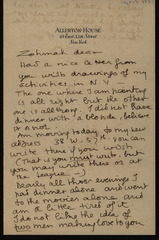 ALLERTON HOUSE
143 EAST 39th STREET
New York
Zohmah dear
Had a nice letter from
you with drawings of my
activities in N.Y.
The one where I am painting
is all right but the other
one is all wrong. I did not have
dinner with a blonde, believe
it or not
Am moving today to my new
address 38 W. 57th you can
write there if you wish
(That is you must write, but
you may write there or at
the league —)
Nearly all these evenings I
had dinner alone and went
to the movies alone and
am a little tired of it
I do not like the idea of
two men making love to you